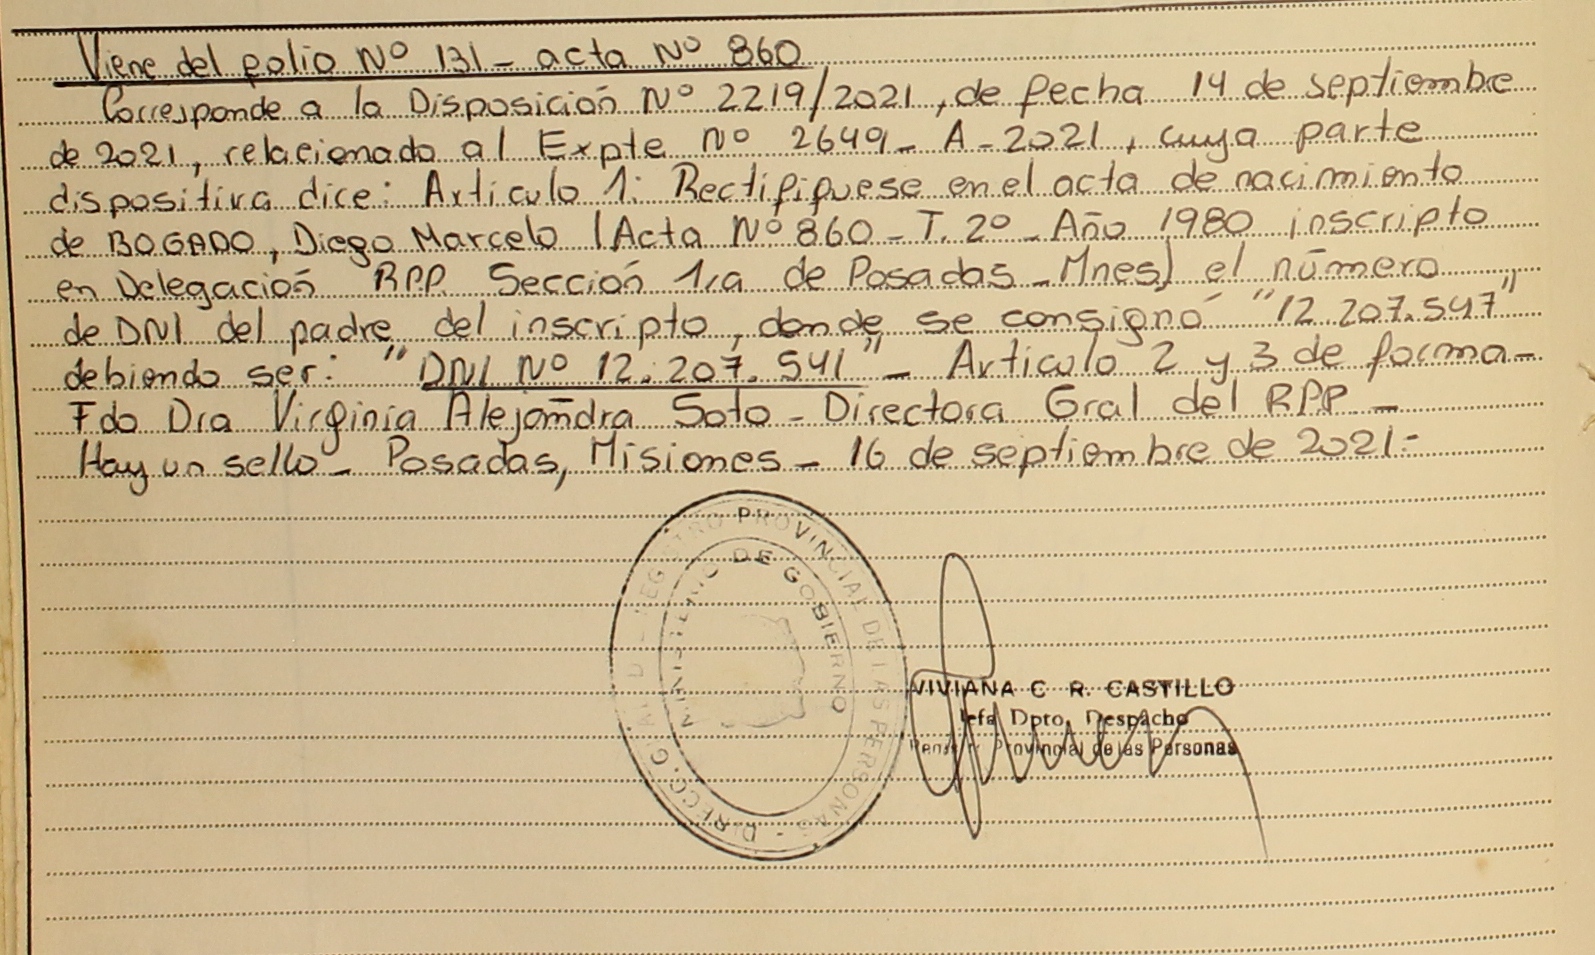 Viene del folio Nº 131 - acta Nº 860
Corresponde a la Disposición Nº 2219/2021, de fecha 14 de septiembre
de 2021, relacionado al Expte Nº 2649 - A - 2021, cuya parte
dispositiva dice: Artículo 1: Rectifíquese en el acta de nacimiento
de BOGADO, Diego Marcelo (Acta Nº 860 - T. 2º - Año 1980 inscripto
en Delegación RPP. Sección 1ra de Posadas - Mnes) el número
de DNI del padre del inscripto, donde se consignó "12.207.547"
debiendo ser: "DNI Nº 12.207.541" - Artículo 2 y 3 de forma -
Fdo Dra Virginia Alejandra Soto - Directora Gral del RPP -
Hay un sello - Posadas, Misiones - 16 de septiembre de 2021 -
REGISTRO PROVINCIAL DE LAS PERSONAS - DIRECC. GRAL D
MINISTERIO DE GOBIERNO
VIVIANA C R. CASTILLO
Jefa Dpto. Despacho
Provincial de las Personas